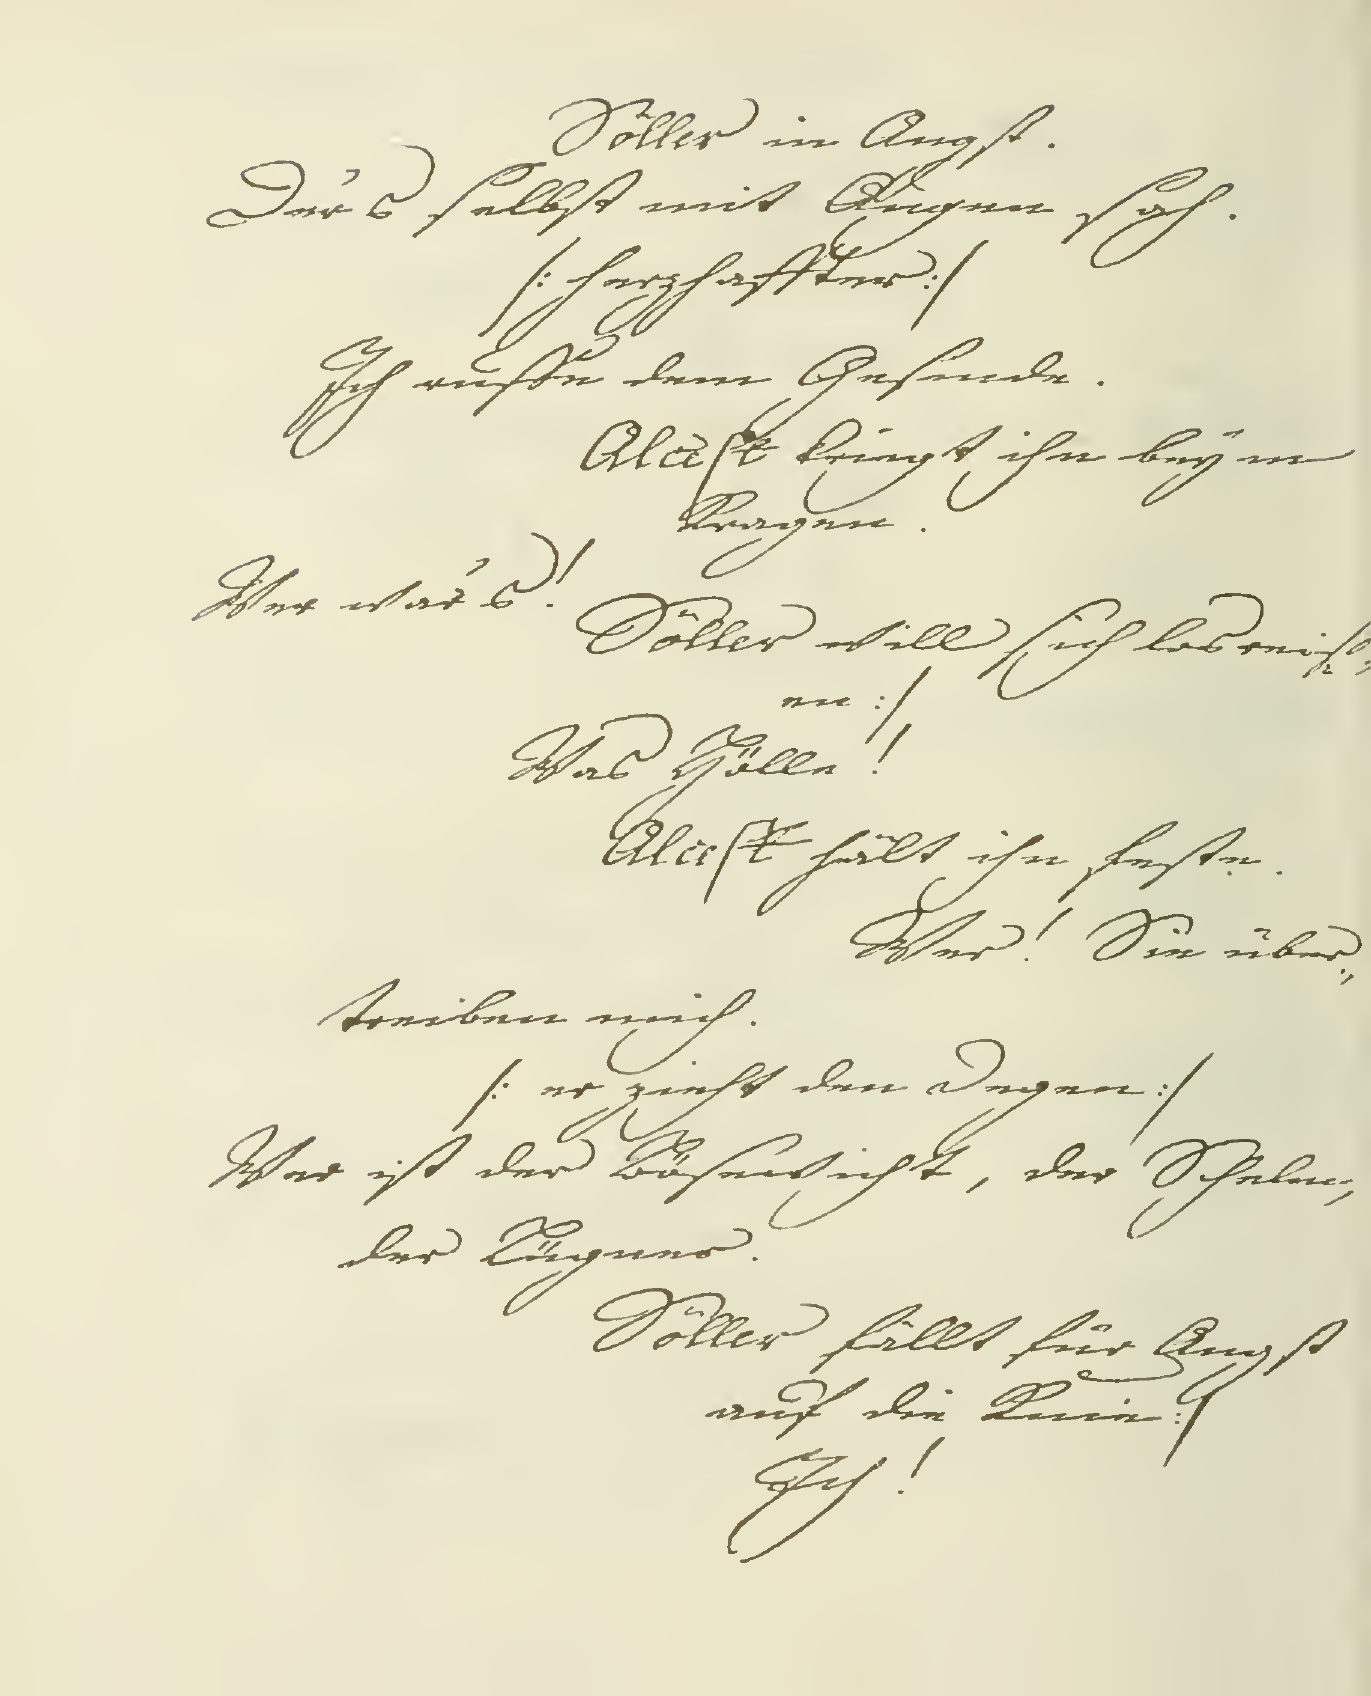 Söller in Angst.
Der's selbst mit Augen sah.
/: herzhaffter :/
Ich ruffe dem Gesinde.
Alcest kriegt ihn beym
Kragen.
Wer war's!
Söller will sich losreiss,
en :/
Was Hölle!
Alcest hält ihn feste.
Wer! Sie über,,
treiben mich.
/: er zieht den Degen :/
Wer ist der Bösewicht, der Schelm,
der Lügner.
Söller fällt für Angst
auf die Knie :/
Ich!